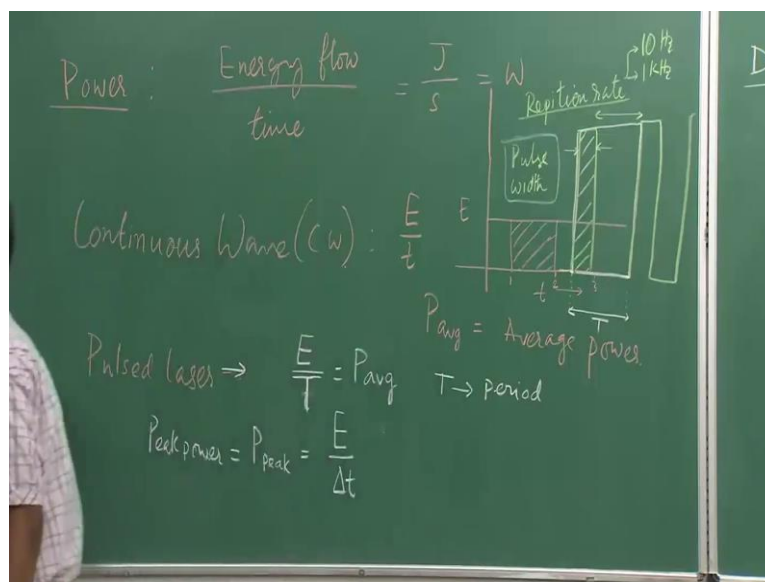 Power : Energy flow / time = J / s = W
10 Hz
1 kHz
Repition rate
Pulse
width
E
Continuous Wave (CW) : E / t
t
T
Pavg = Average power
Pulsed lases → E / T = Pavg T → period
Peak power = Ppeak = E / Δt
D